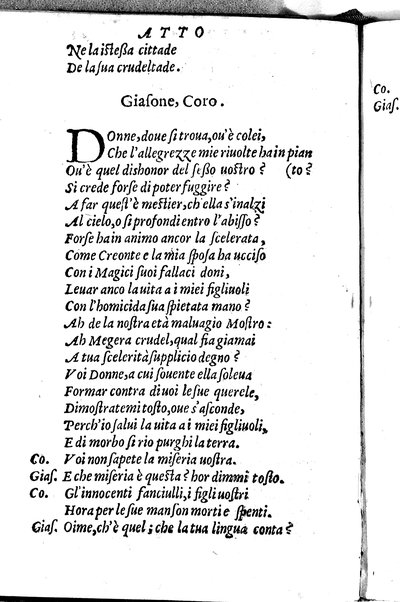 ATTO
Ne la istessa cittade
De la sua crudeltade.
Giasone, Coro.
DOnne, doue si troua, ou'è colei,
Che l'allegrezze mie riuolte ha in pian
Ou'è quel dishonor del sesso uostro? (to?
Si crede forse di poter fuggire?
A far quest'è mestier, ch'ella s'inalzi
Al cielo, o si profondi entro l'abisso?
Forse ha in animo ancor la scelerata,
Come Creonte e la mia sposa ha ucciso
Con i Magici suoi fallaci doni,
Leuar anco la uita a i miei figliuoli
Con l'homicida sua spietata mano?
Ah de la nostra età maluagio Mostro:
Ah Megera crudel, qual fia giamai
A tua scelerità supplicio degno?
Voi Donne, a cui souente ella soleua
Formar contra di uoi le sue querele,
Dimostratemi tosto, oue s'asconde,
Perch'io salui la uita a i miei figliuoli,
E di morbo si rio purghi la terra.
Co. Voi non sapete la miseria uostra.
Gias. E che miseria è questa? hor dimmi tosto.
Co. Gl'innocenti fanciulli, i figli uostri
Hora per le sue man son morti e spenti.
Gias. Oime, ch'è quel; che la tua lingua conta?
Co.
Gias.